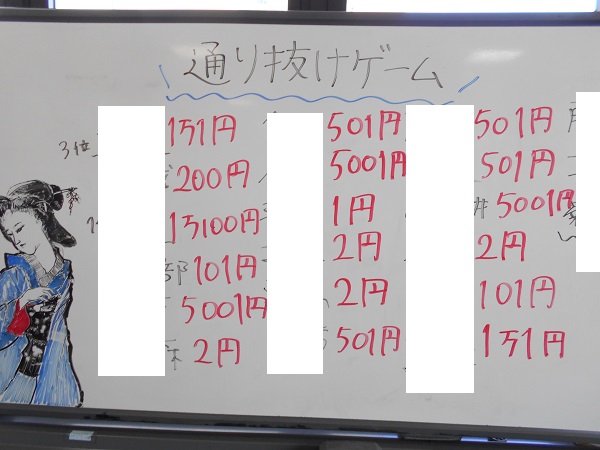 通り抜けゲーム
3位 1万1円 501円 501円
200円 5001円 501円
1万100円 1円 井 5001円
部 101円 2円 2円
5001円 2円 101円
2円 501円 1万1円